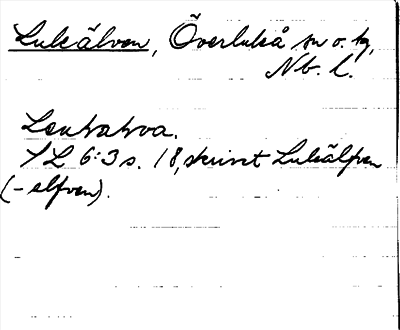 Lulälven, Överluleå sn o. tg,
Nb. l.
Leukatva.
SL 6:3 s. 18, skrivet Lulälfven
(-elfven).